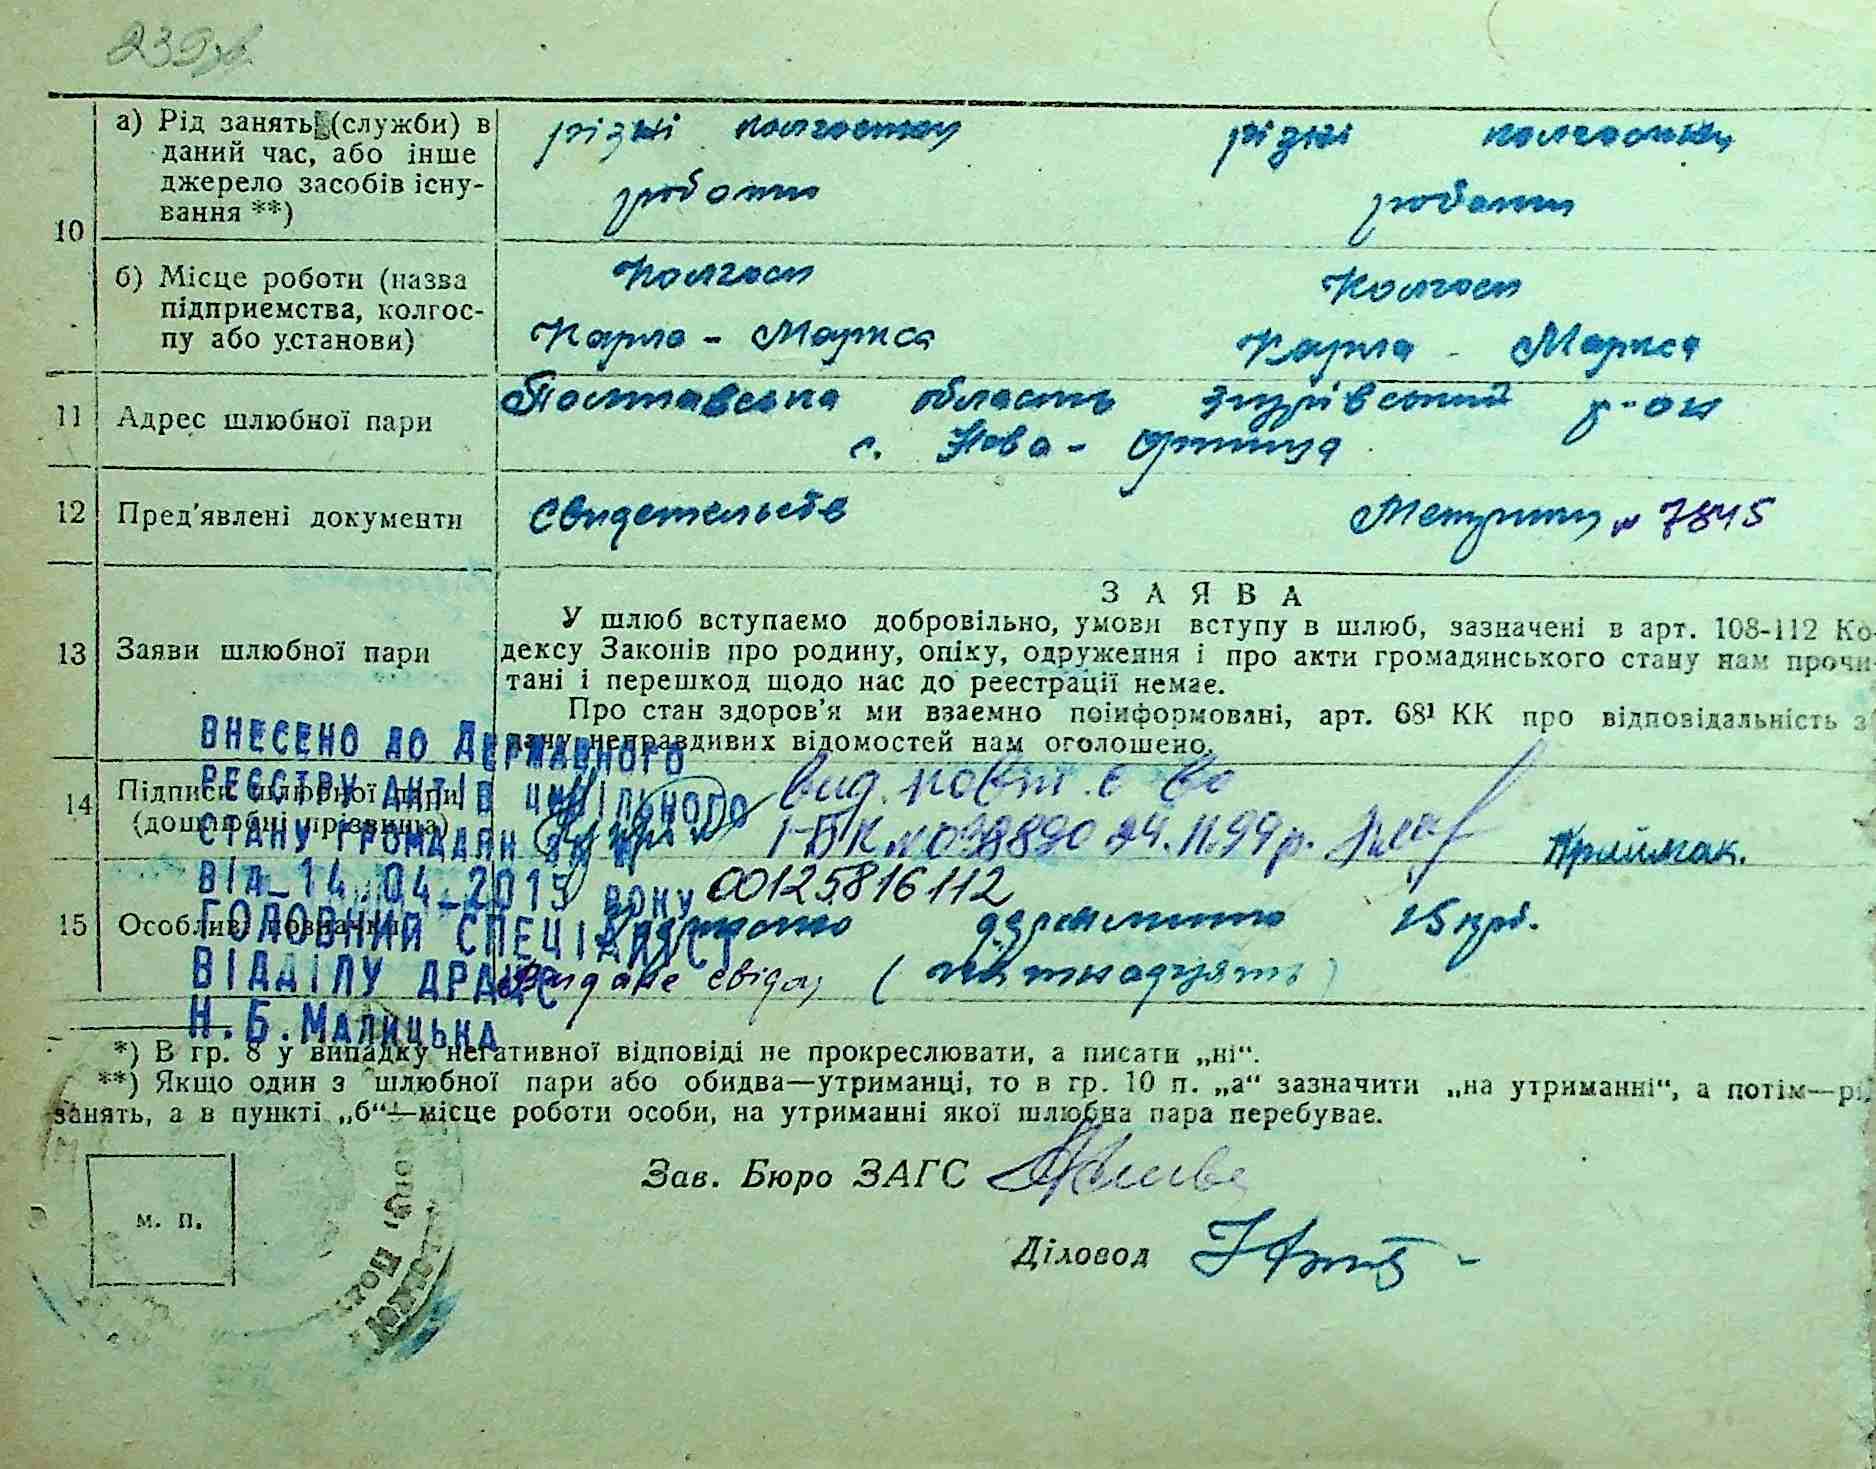 239зв.
а) Рід занять (служби) в
даний час, або інше
джерело засобів існу-
вання **)
різні колгоспни
роботи
різні колгоспни
роботи
10
б) Місце роботи (назва
підприємства, колгос-
пу або установи)
Колгосп
Карла - Маркса
Колгосп
Карла - Маркса
11
Адрес шлюбної пари
Полтавська область Згурівський р-он
с. Нова - Оржиця
12
Пред'явлені документи
Свидетельств
Метрики № 7845
13
Заяви шлюбної пари
ЗАЯВА
У шлюб вступаємо добровільно, умови вступу в шлюб, зазначені в арт. 108-112 Ко-
дексу Законів про родину, опіку, одруження і про акти громадянського стану нам прочи-
тані і перешкод щодо нас до реєстрації немає.
Про стан здоров'я ми взаємно поінформовані, арт. 68¹ КК про відповідальність з
дачу неправдивих відомостей нам оголошено.
14
Підписи шлюбної пари
(дошлюбні прізвища)
вид. повт. с-во
І-БК № 098890 24.11.99р.
Приймак.
ВНЕСЕНО ДО ДЕРЖАВНОГО
РЕЄСТРУ АКТІВ ЦИВІЛЬНОГО
СТАНУ ГРОМАДЯН ЗА №
ВІД_14_04_2015 РОКУ
00125816112
ГОЛОВНИЙ СПЕЦІАЛІСТ
ВІДДІЛУ ДРАЦС
Н.Б.МАЛИЦЬКА
15
Особливі позначки
держмито 15 крб.
Видане свідоц (пятнадцять)
*) В гр. 8 у випадку негативної відповіді не прокреслювати, а писати „ні“.
**) Якщо один з шлюбної пари або обидва—утриманці, то в гр. 10 п. „а“ зазначити „на утриманні“, а потім—рід
занять, а в пункті „б“—місце роботи особи, на утриманні якої шлюбна пара перебуває.
Зав. Бюро ЗАГС
м. п.
Діловод